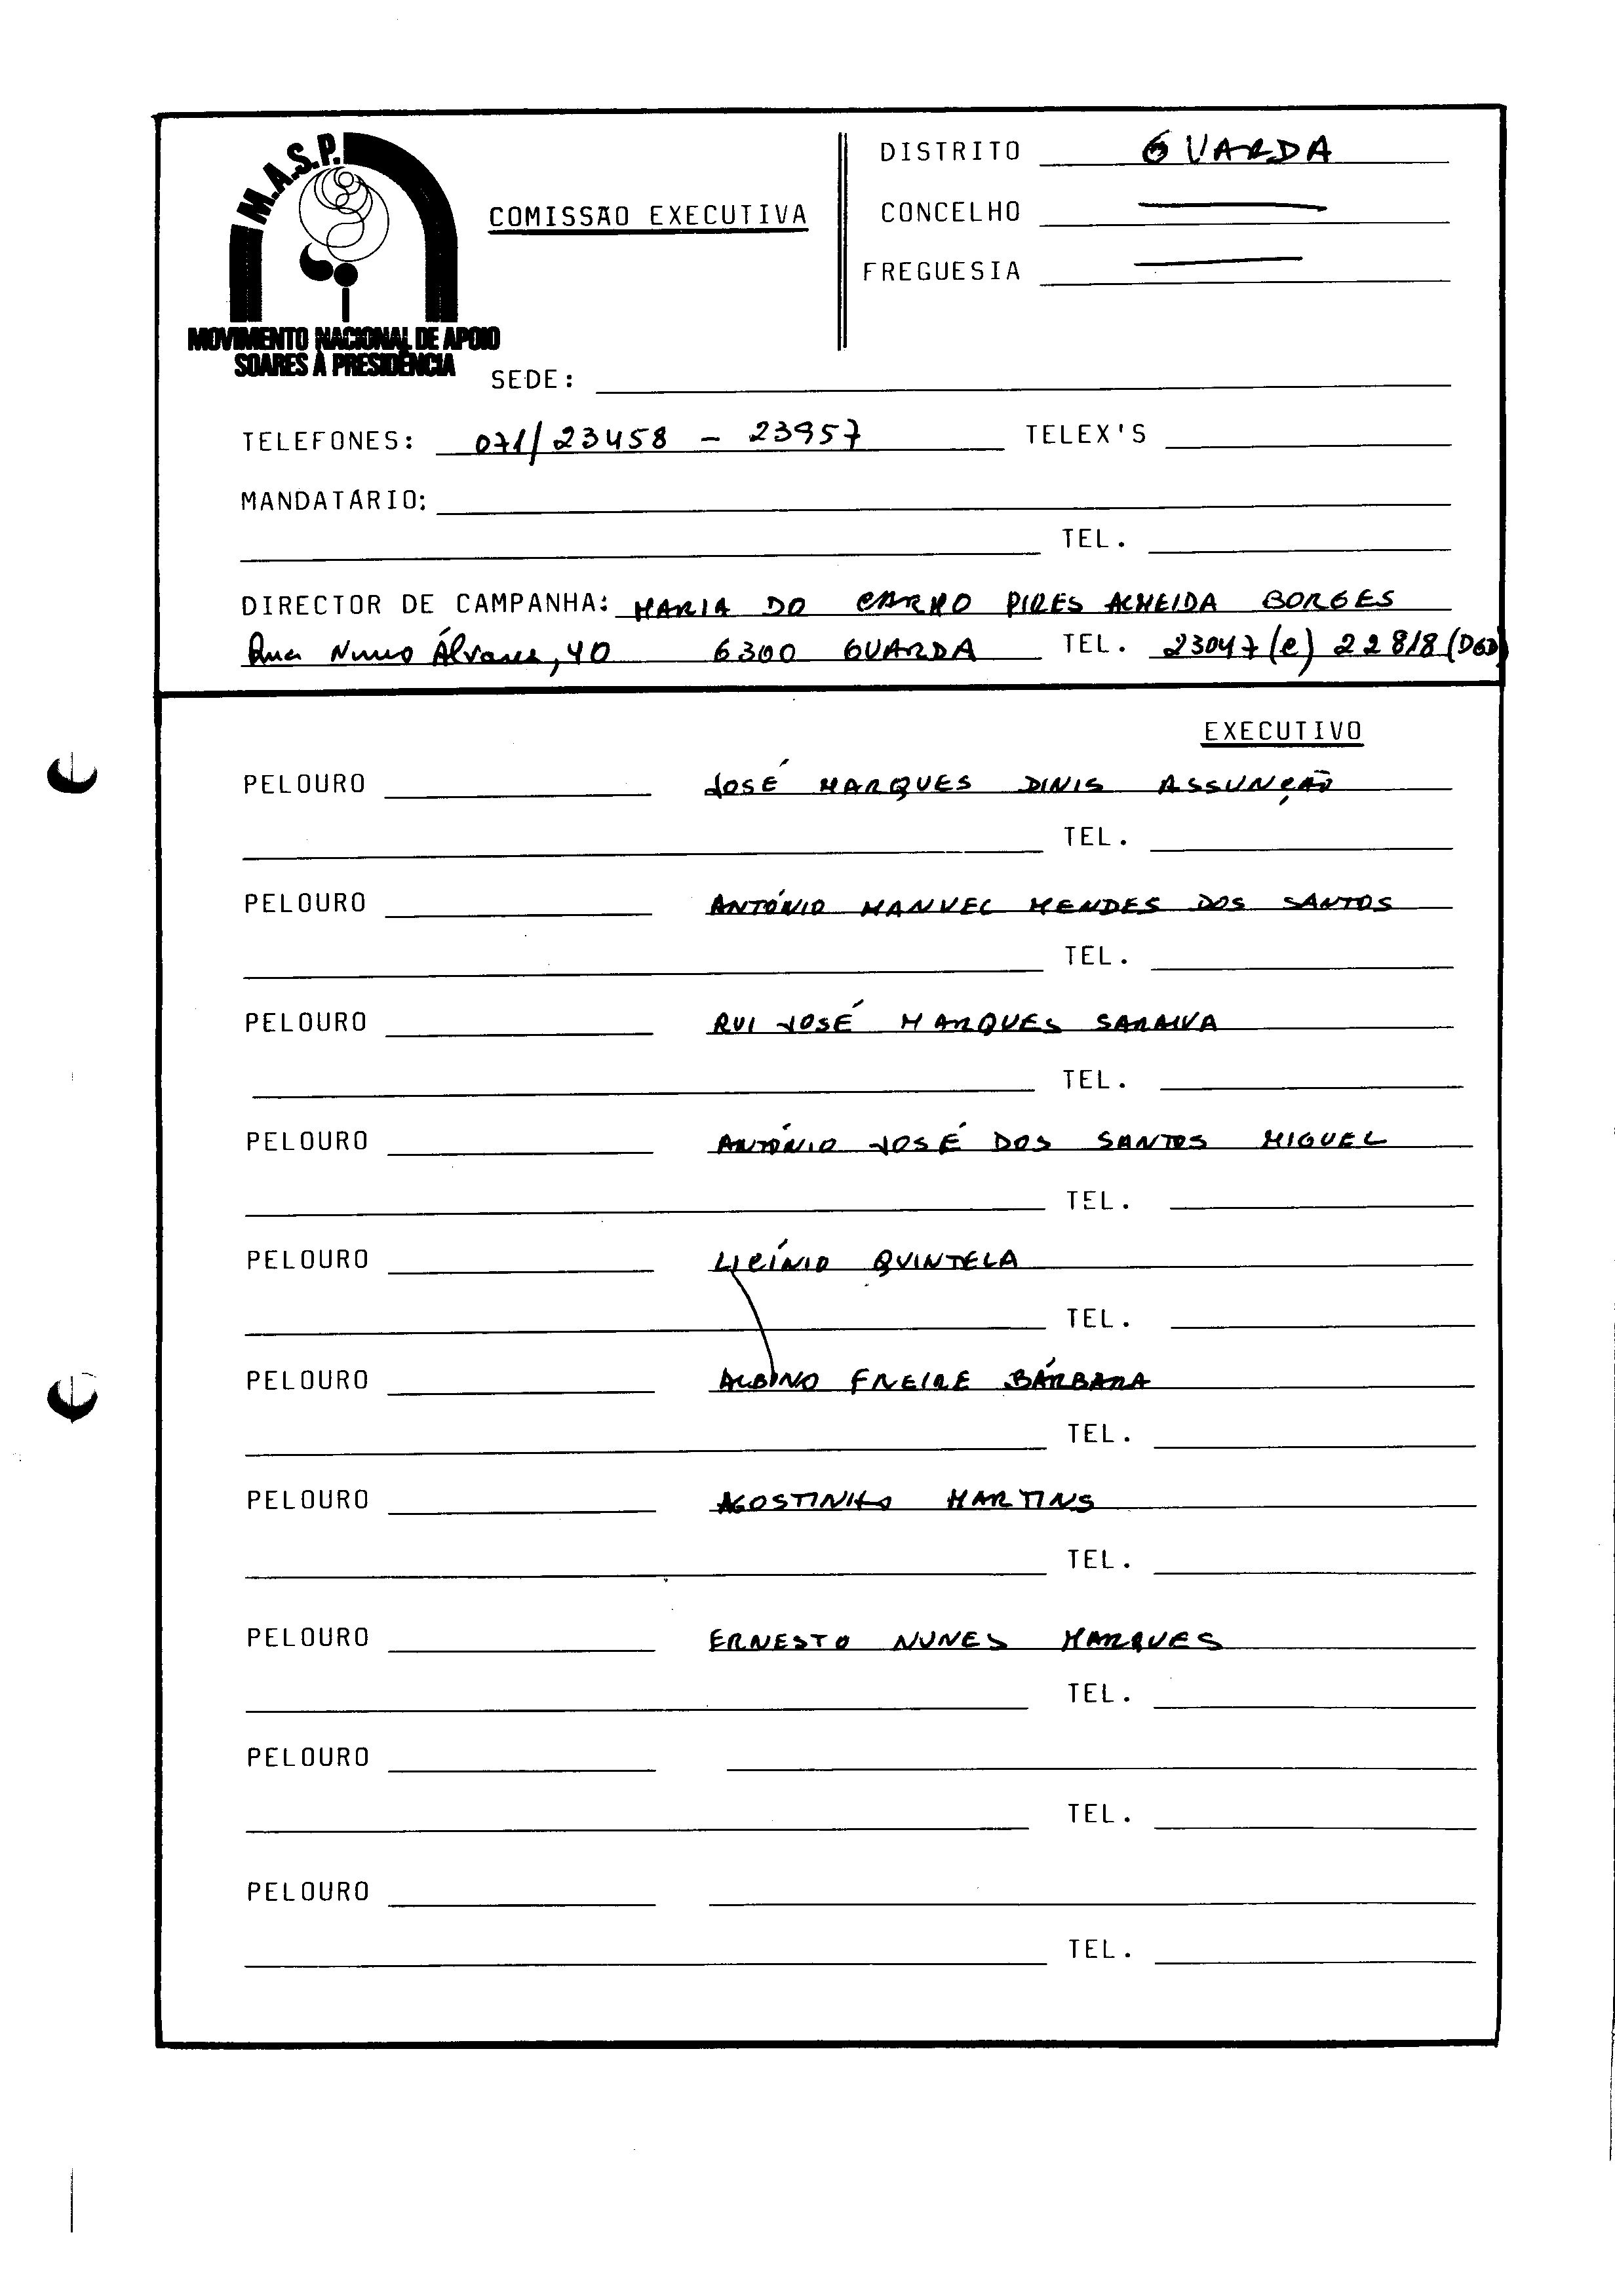 M.A.S.P.
MOVIMENTO NACIONAL DE APOIO
SOARES À PRESIDÊNCIA
COMISSÃO EXECUTIVA
DISTRITO GUARDA
CONCELHO
FREGUESIA
SEDE:
TELEFONES: 071/23458 - 23957 TELEX'S
MANDATÁRIO:
TEL.
DIRECTOR DE CAMPANHA: MARIA DO CARMO PIRES ALMEIDA BORGES
Rua Nuno Álvares, 40 6300 GUARDA TEL. 23047 (e) 22818 (DGD)
EXECUTIVO
PELOURO JOSÉ MARQUES DINIS ASSUNÇÃO
TEL.
PELOURO ANTÓNIO MANUEL MENDES DOS SANTOS
TEL.
PELOURO RUI JOSÉ MARQUES SARAIVA
TEL.
PELOURO ANTÓNIO JOSÉ DOS SANTOS MIGUEL
TEL.
PELOURO LICÍNIO QUINTELA
TEL.
PELOURO ALBINO FREIRE BÁRBARA
TEL.
PELOURO AGOSTINHO MARTINS
TEL.
PELOURO ERNESTO NUNES MARQUES
TEL.
PELOURO
TEL.
PELOURO
TEL.